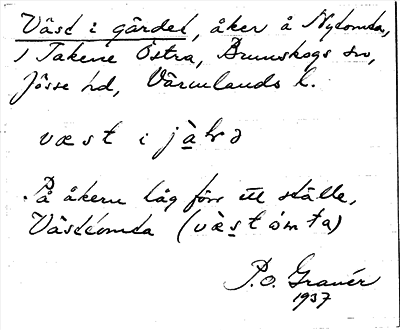 Väst i gärdet, åker å Nytomta,
1 Takene Östra, Brunskogs sn,
Jösse hd, Värmlands l.
væst i jàḷɜ
På åkern låg förr ett ställe,
Västtomta (væ̀stómta)
P.O. Granér
1937